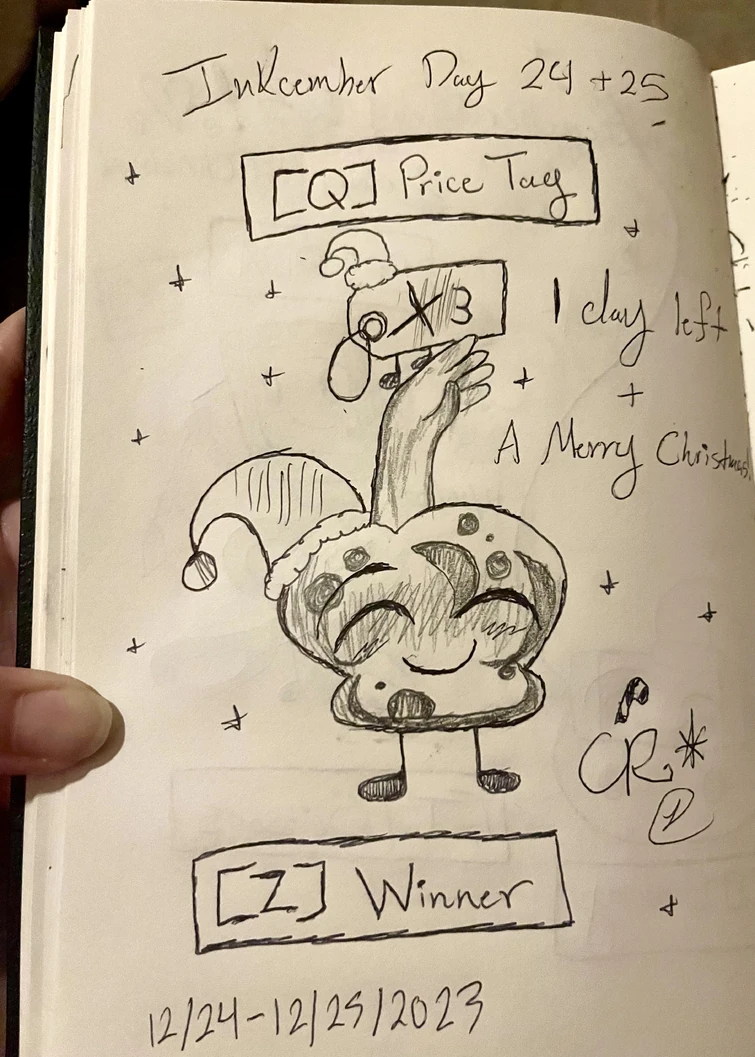 InKcember Day 24 + 25
[Q] Price Tag
X3
1 day left
+
A Merry Christmas!
CR*
[Z] Winner
12/24-12/25/2023